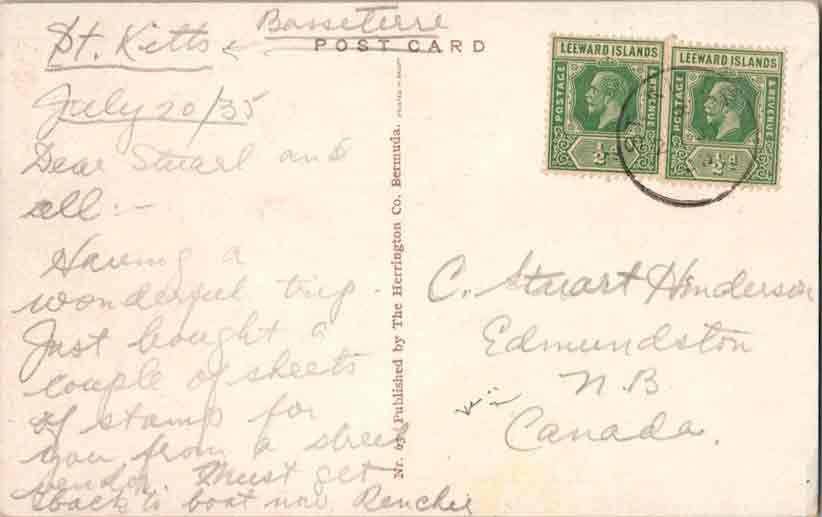 St. Kitts Basseterre
POST CARD
July 20/35
Dear Stuart and
all:-
Having a
wonderful trip.
Just bought a
couple of sheets
of stamp for
you from a street
vendor. Must get
back to boat now. Renchie
Nr. Published by The Herrington Co. Bermuda.
LEEWARD ISLANDS
POSTAGE
& REVENUE
½d
LEEWARD ISLANDS
POSTAGE
& REVENUE
½d
C. Stuart Henderson
Edmundston
N.B.
Canada.